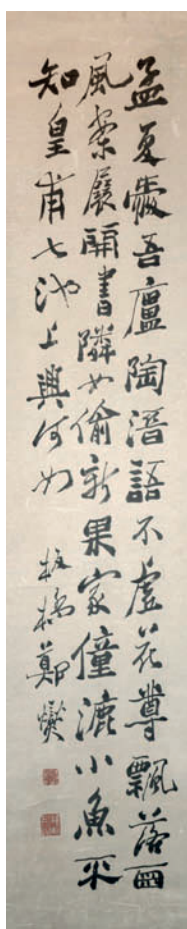 孟夏愛吾廬陶潛語不虛花尊飄落酒
風案展開書隣女偷新果家僮漉小魚不
知皇甫七池上興何如
板橋鄭燮